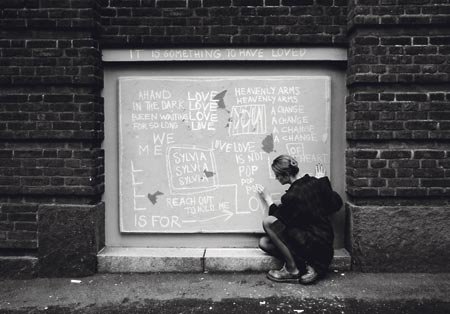 IT IS SOMETHING TO HAVE LOVED
A HAND
IN THE DARK
BEEN WAITING
FOR SO LONG
LOVE
LOVE
LOVE
LOVE
HEAVENLY ARMS
HEAVENLY ARMS
A CHANGE
A CHANGE
A CHANGE
A CHANGE
OF
HEART
WE
ME
SYLVIA
SYLVIA
SYLVIA
LOVE LOVE
IS NOT
POP
POP
POP
REACH OUT
TO HOLD ME
L
IS FOR
LO